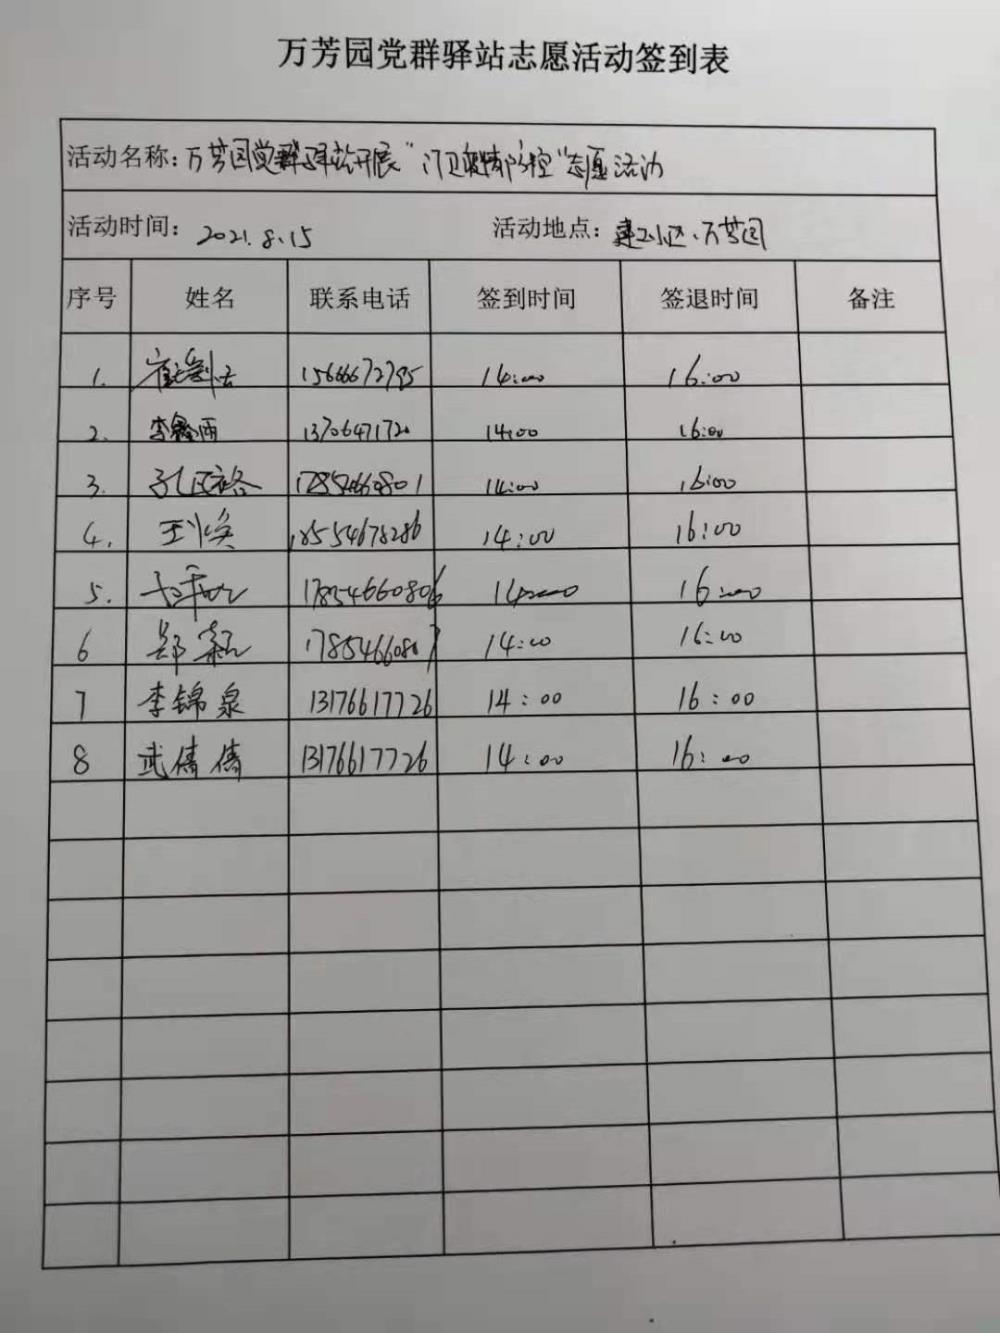 万芳园党群驿站志愿活动签到表
活动名称：万芳园党群驿站开展“门卫疫情防控”志愿活动
活动时间： 2021.8.15 活动地点： 建工小区、万芳园
序号 姓名 联系电话 签到时间 签退时间 备注
1. 14:00 16:00
2. 李鑫雨 13706471720 14:00 16:00
3. 14:00 16:00
4. 18554678286 14:00 16:00
5. 17854660806 14:00 16:00
6 郑 17854660807 14:00 16:00
7 李锦泉 13176617726 14:00 16:00
8 武倩倩 13176617726 14:00 16:00